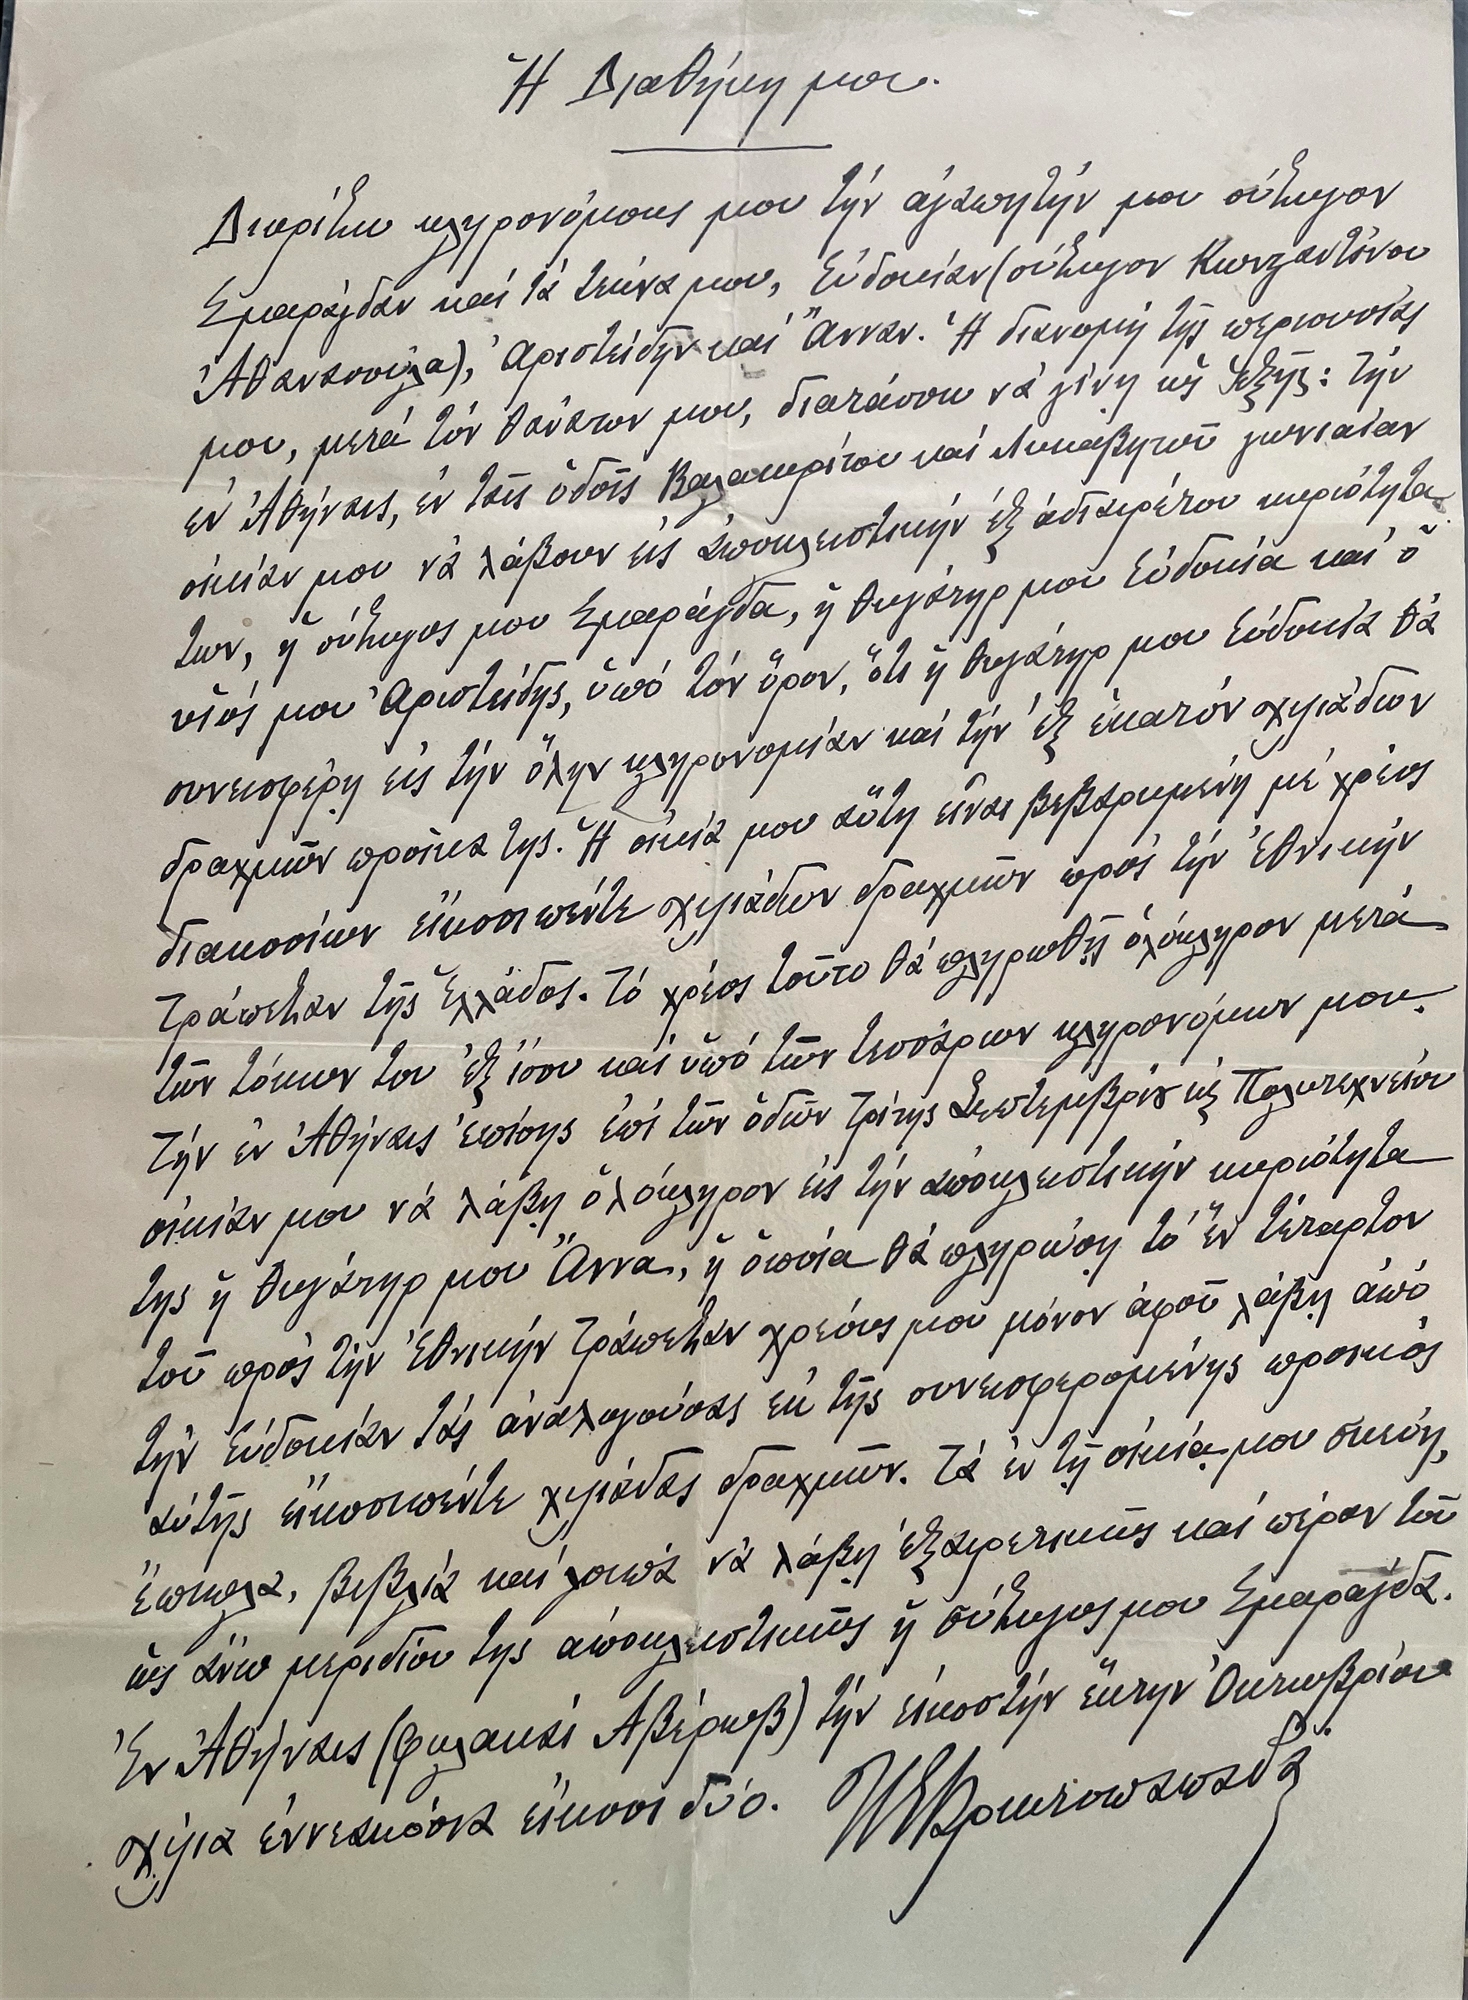 Ἡ Διαθήκη μου.
Διορίζω κληρονόμους μου τήν ἀγαπητήν μου σύζυγον
Σμαράγδαν καί τά τέκνα μου, Εὐδοκίαν (σύζυγον Κωνσταντίνου
Ἀθανασούλα), Ἀριστείδην καί Ἄνναν. Ἡ διανομή τῆς περιουσίας
μου, μετά τόν θάνατον μου, διατάσσω νά γίνῃ ὡς ἑξῆς: Τήν
ἐν Ἀθήναις, ἐν ταῖς ὁδοῖς Βαλαωρίτου καί Λυκαβηττοῦ γωνιαίαν
οἰκίαν μου νά λάβουν εἰς ἀποκλειστικήν ἐξ ἀδιαιρέτου κυριότητα
των, ἡ σύζυγος μου Σμαράγδα, ἡ θυγάτηρ μου Εὐδοκία καί ὁ
υἱός μου Ἀριστείδης, ὑπό τόν ὅρον, ὅτι ἡ θυγάτηρ μου Εὐδοκία θά
συνεισφέρῃ εἰς τήν ὅλην κληρονομίαν καί τήν ἐξ ἑκατόν χιλιάδων
δραχμῶν προῖκα της. Ἡ οἰκία μου αὕτη εἶναι βεβαρυμένη μέ χρέος
διακοσίων εἴκοσι πέντε χιλιάδων δραχμῶν πρός τήν Ἐθνικήν
Τράπεζαν τῆς Ἑλλάδος. Τό χρέος τοῦτο θά πληρωθῇ ὁλόκληρον μετά
τῶν τόκων του ἐξ ἴσου καί ὑπό τῶν τεσσάρων κληρονόμων μου.
Τήν ἐν Ἀθήναις ἐπίσης ἐπί τῶν ὁδῶν Τρίτης Σεπτεμβρίου καί Πολυτεχνείου
οἰκίαν μου νά λάβῃ ὁλόκληρον εἰς τήν ἀποκλειστικήν κυριότητα
της ἡ θυγάτηρ μου Ἄννα, ἡ ὁποία θά πληρώσῃ τό ἕν τέταρτον
τοῦ πρός τήν Ἐθνικήν Τράπεζαν χρέους μου μόνον ἀφοῦ λάβῃ ἀπό
τήν Εὐδοκίαν τάς ἀναλογούσας ἐκ τῆς συνεισφερομένης προικός
αὐτῆς εἴκοσι πέντε χιλιάδας δραχμῶν. Τά ἐν τῇ οἰκίᾳ μου σκεύη,
ἔπιπλα, βιβλία καί λοιπά νά λάβῃ ἐξαιρετικῶς καί πέραν τοῦ
ὡς ἄνω μεριδίου της ἀποκλειστικῶς ἡ σύζυγος μου Σμαράγδα.
Ἐν Ἀθήναις (φυλακαί Ἀβέρωφ) τήν εἰκοστήν ἕκτην Ὀκτωβρίου
χίλια ἐννεακόσια εἴκοσι δύο. Π Ε Πρωτοπαπαδά